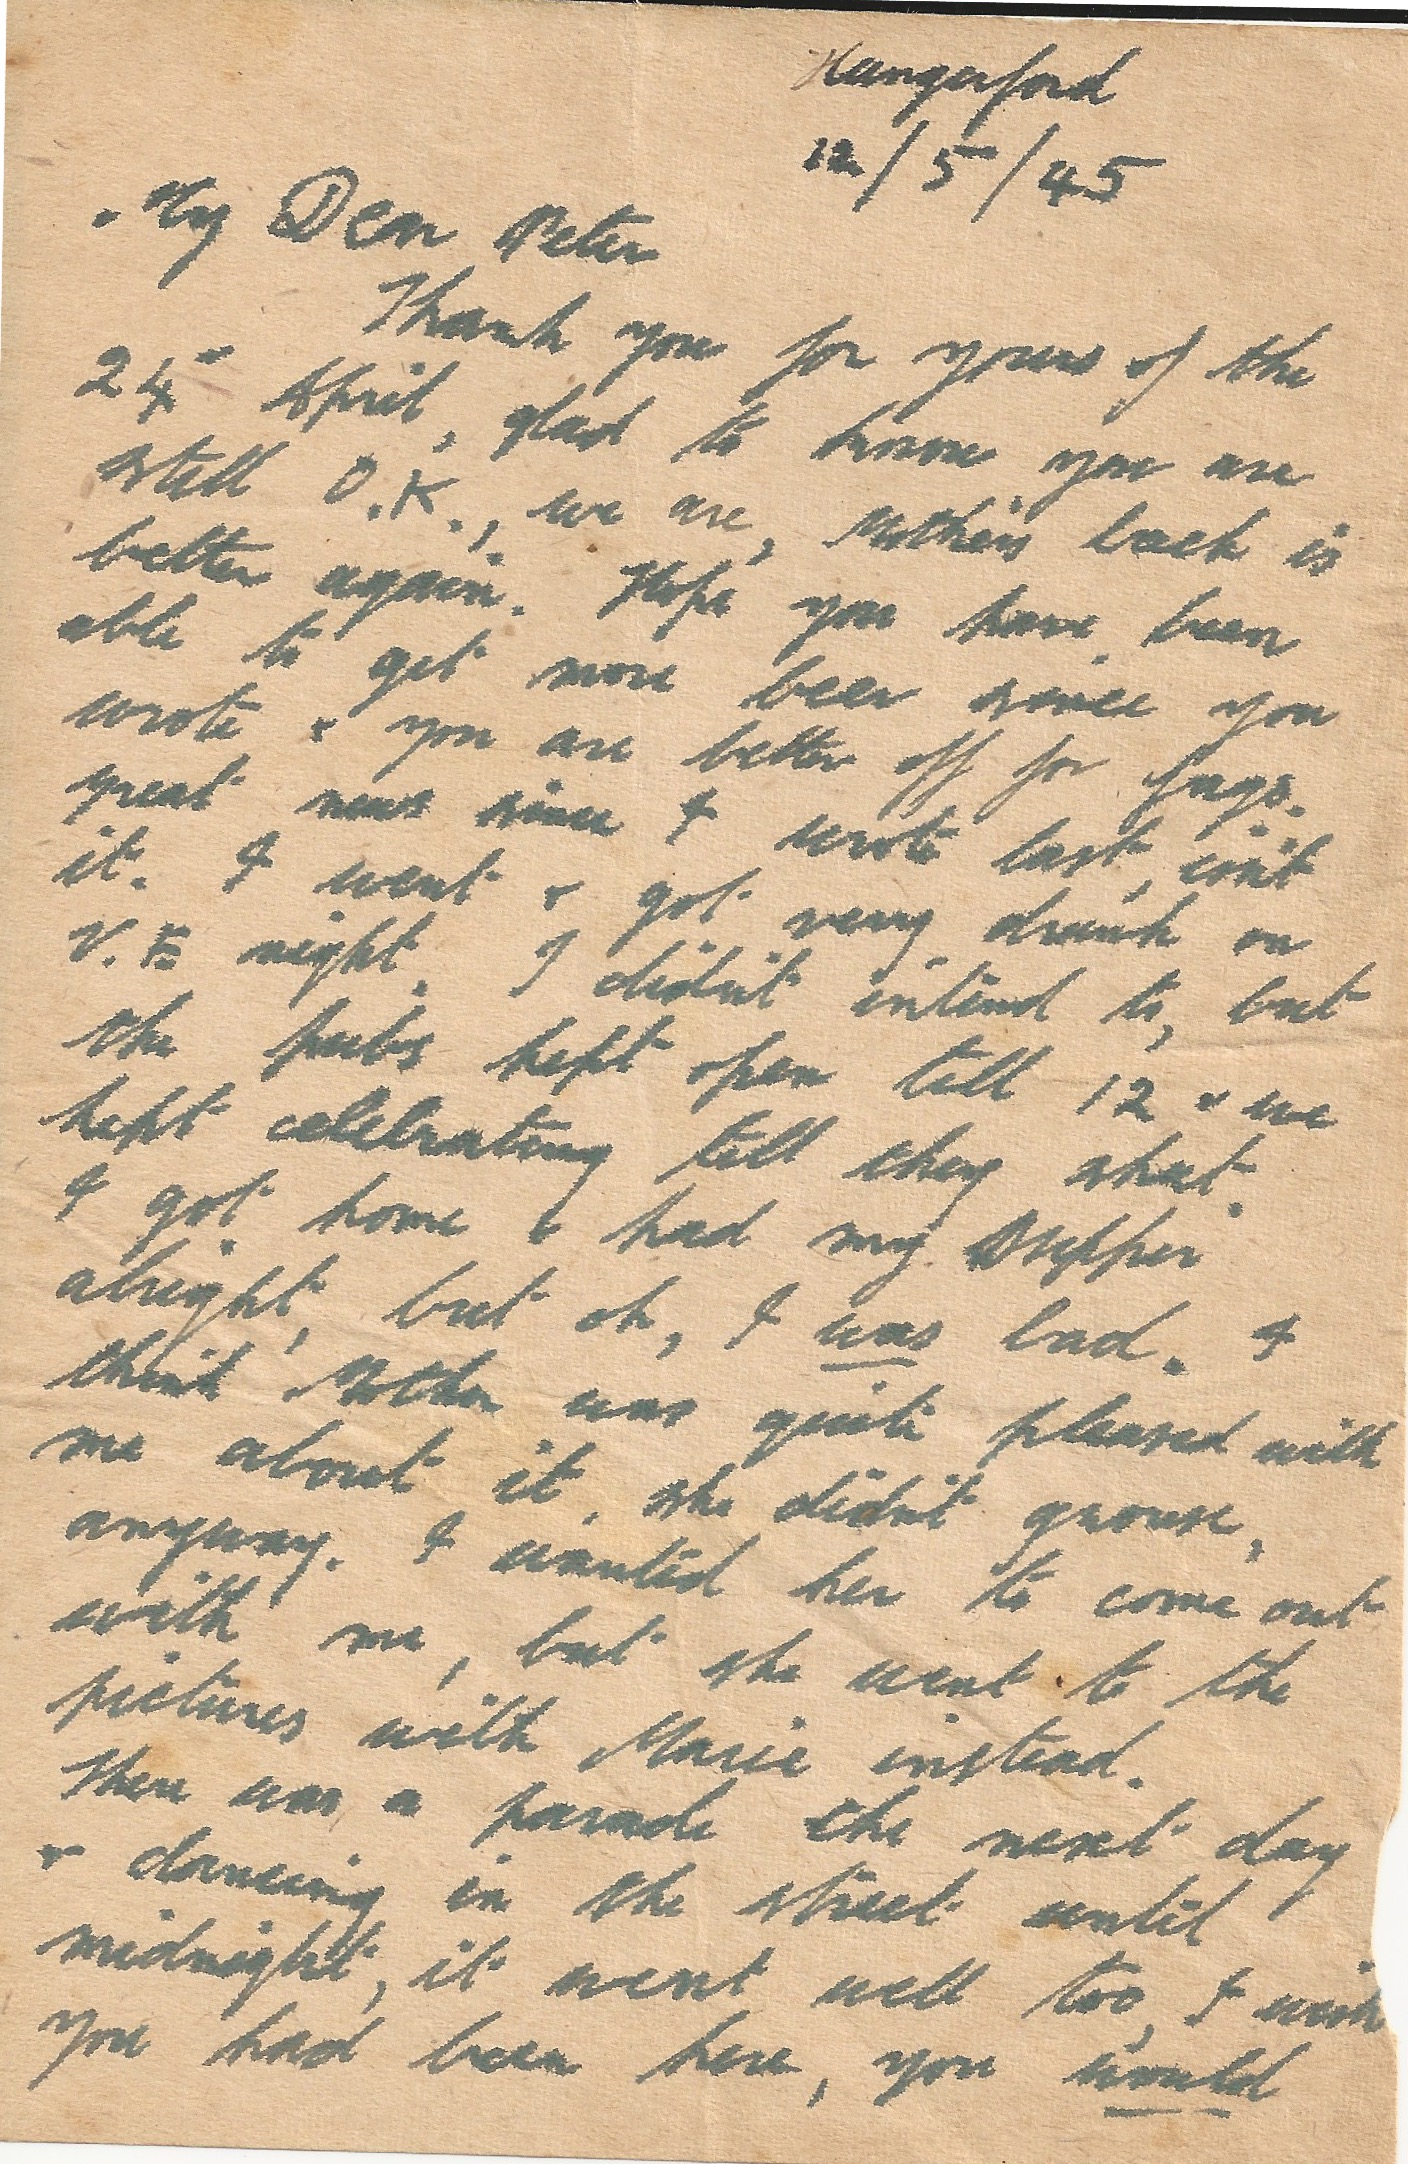 Hungerford
12/5/45
My Dear Peter
Thank you for yours of the
24th April, glad to know you are
still O.K., we are, Mothers back is
better again. Hope you have been
able to get more beer since you
wrote & you are better off for fags.
great news since I wrote last, isn't
it. I went & got very drunk on
V.E. night. I didn't intend to, but
the pubs kept open till 12 & we
kept celebrating till they shut.
I got home & had my supper
alright, but oh, I was bad. I
think Mother was quite pleased with
me about it, she didn't grouse,
anyway. I wanted her to come out
with me, but she went to the
pictures with Marie instead.
There was a parade the next day
& dancing in the street until
midnight, it went well too, I wish
you had been here, you would